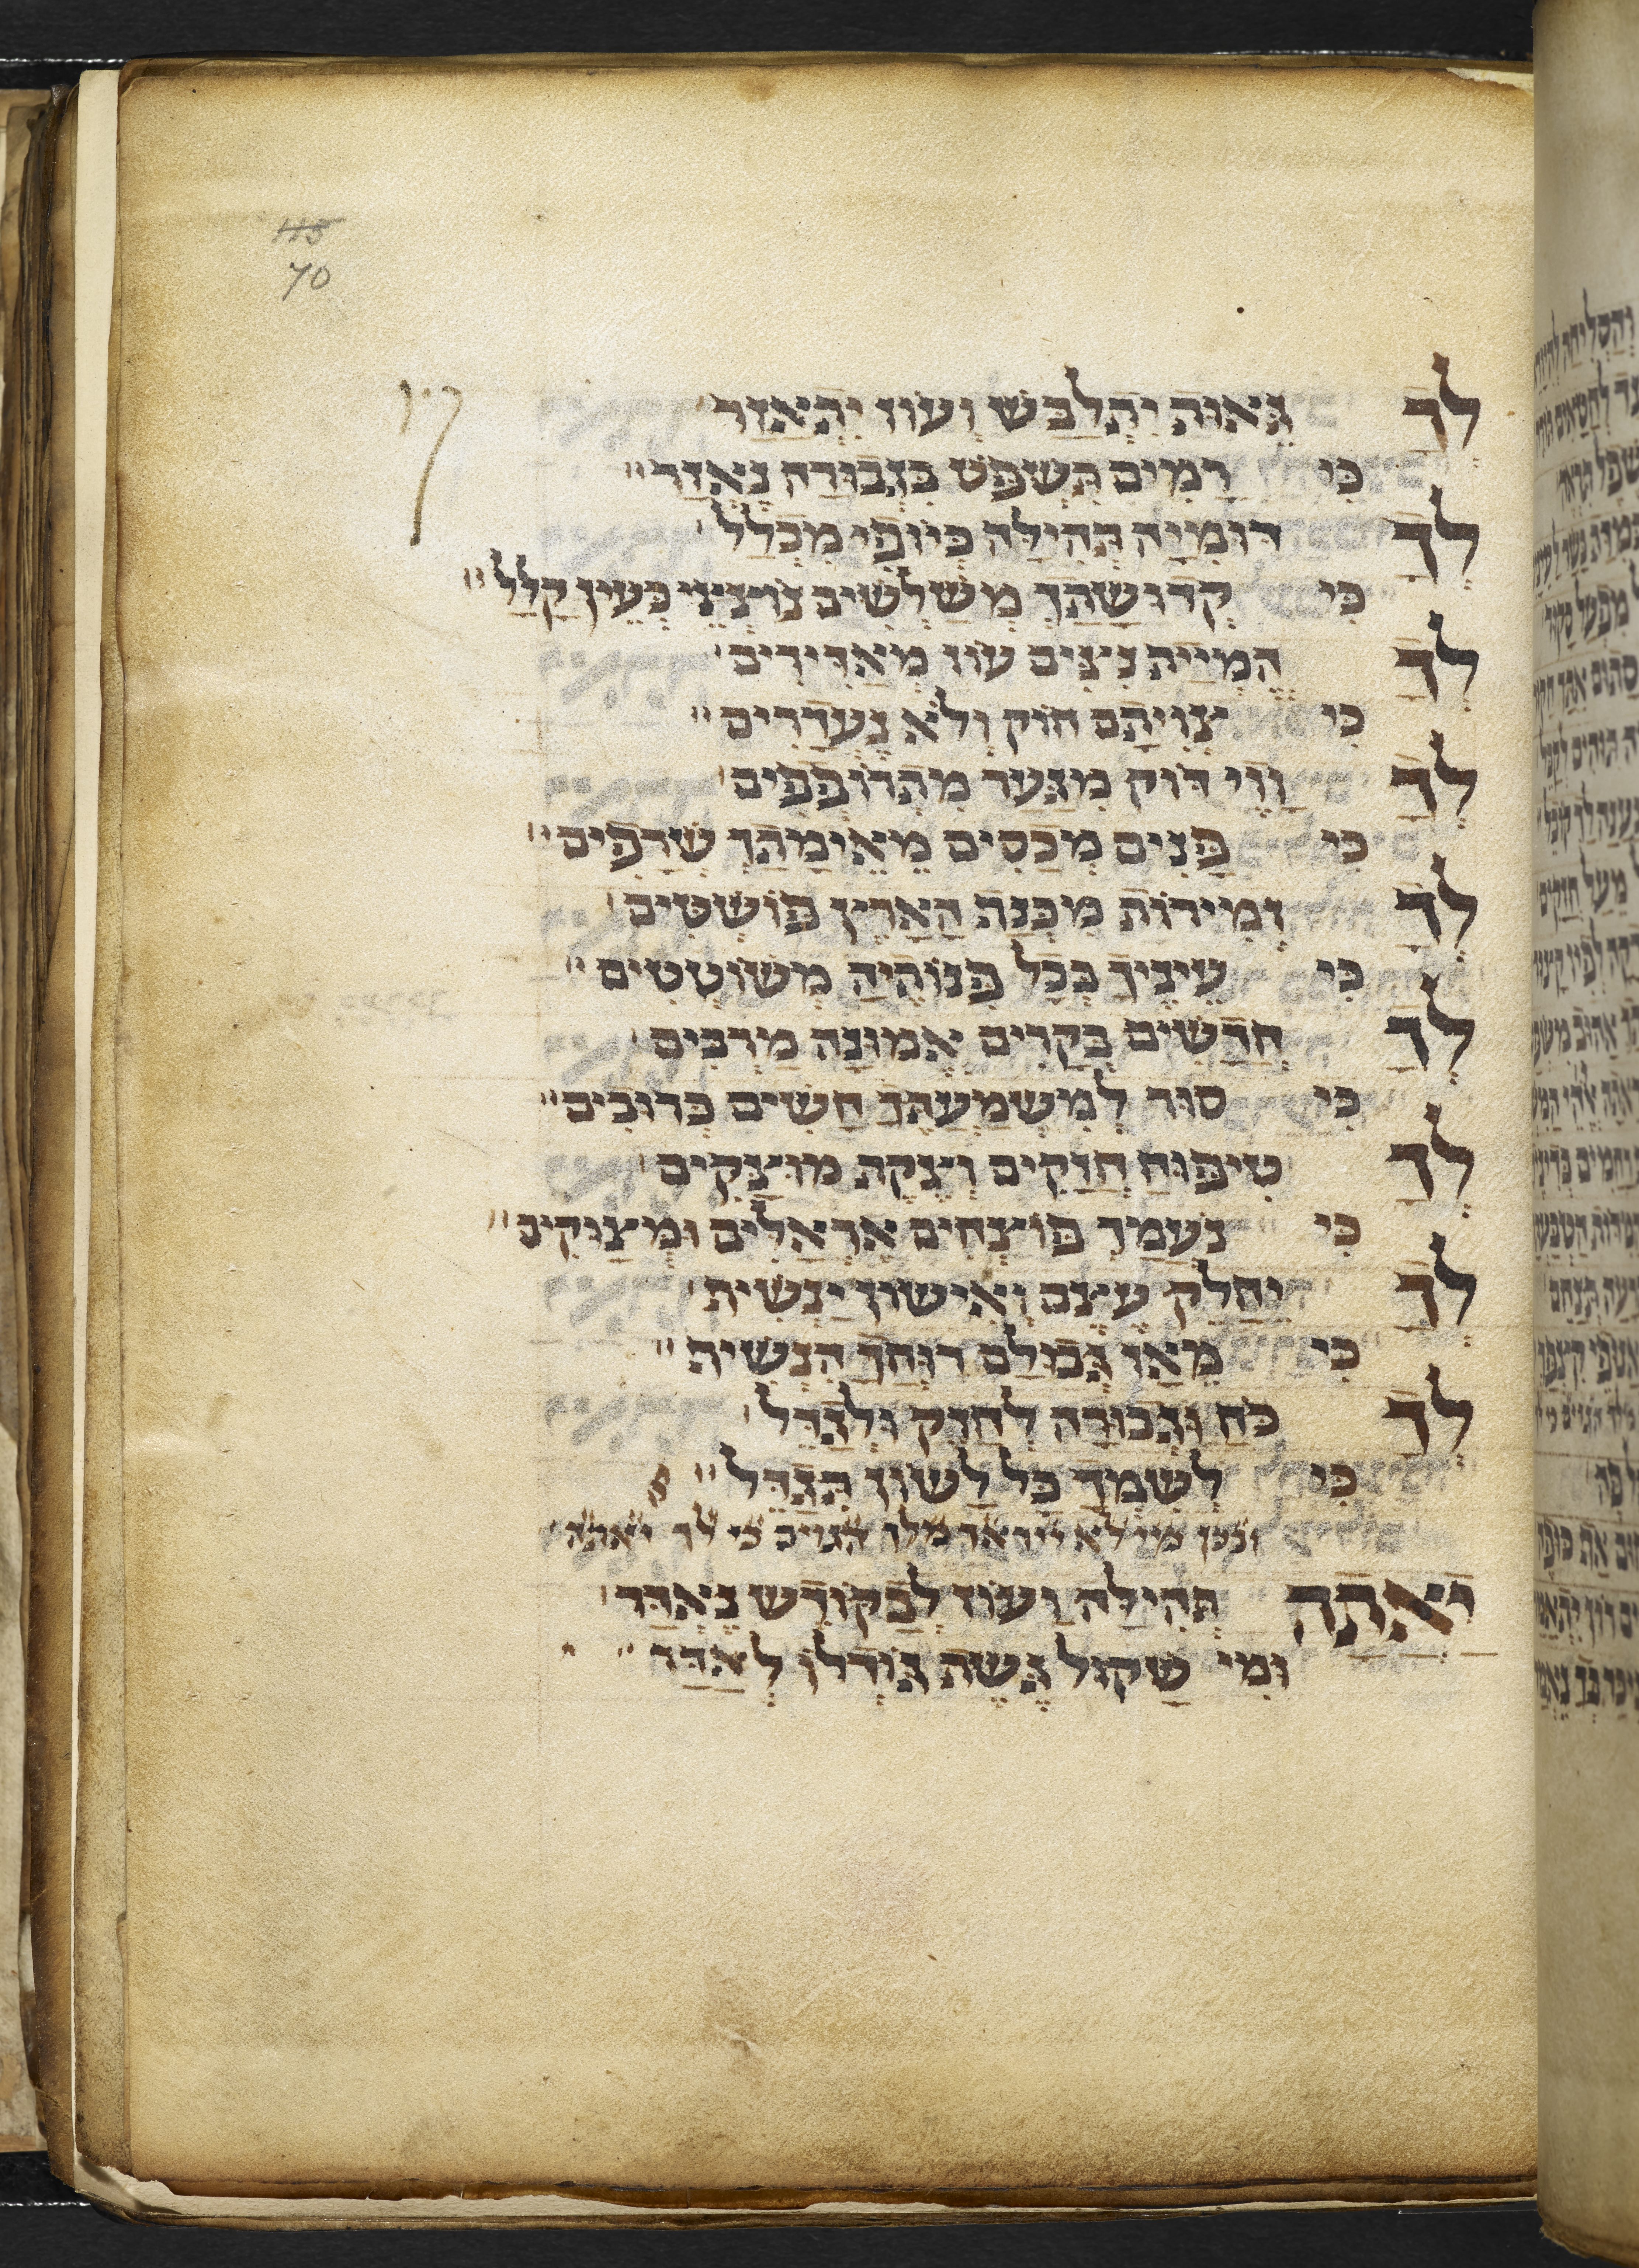 115
70
לָךְ גֵּאוּת תִּתְלַבַּשׁ וְעוֹז תִּתְאַזַּר
כִּי רָמִים תִּשְׁפֹּט בִּגְבוּרָה נֶאְזָר
לָךְ דּוּמִיָּה תְּהִילָּה כְּיוֹפִי מִכְלָל
כִּי קְדוּשָּׁתָךְ מְשַׁלְּשִׁים נוֹצְצֵי כְּעֵין קָלָל
לָךְ הֶמְיַית עוֹז מַאֲדִּירִים
כִּי צִוִּיתָם חוֹק וְלֹא נֶעְדָּרִים
לָךְ וָוֵי דּוֹק מִגַּעַר מִתְרוֹפְפִים
כִּי פָּנִים מְכַסִּים מֵאֵימָתָךְ שְׂרָפִים
לָךְ זְמִירוֹת מִכְּנַף הָאָרֶץ פּוֹשְׁטִים
כִּי עֵינֶיךָ בְּכָל פִּנּוֹתֶיהָ מְשׁוֹטְטִים
לָךְ חֲדָשִׁים בְּקָרִים אֱמוּנָה מַרְבִּים
כִּי סוּד לְמִשְׁמַעְתָּךְ חָשִׁים כְּדוֹבְבִים
לָךְ טִיפּוּחַ חֲזָקִים וְצֶקֶת מוּצָקִים
כִּי נָעֳמָךְ פּוֹצְחִים אֶרְאֶלִּים וּמְצוּקִים
לָךְ יַחֲלֹק עֶצֶם וְאִישׁוֹן יַנְשִׁית
כִּי מֵאָז גָּבוּלָם רוּחֲךָ הִנְשִׁית
לָךְ כֹּחַ וּגְבוּרָה לְחַזֵּק וּלְגַדֵּל
כִּי לִשְׁמָךְ כָּל לָשׁוֹן תְּגַדֵּל
ובכן מי לא ייראך מלך הגוים כי לך יאתה
יָאֲתָה תְּהִילָּה וָעוֹז לְבַקּוֹדֶשׁ נֶאְדָּר
וּמִי שָׁקוּל גֶּשֶׁת גּוֹדְלוֹ לְאַדָּר